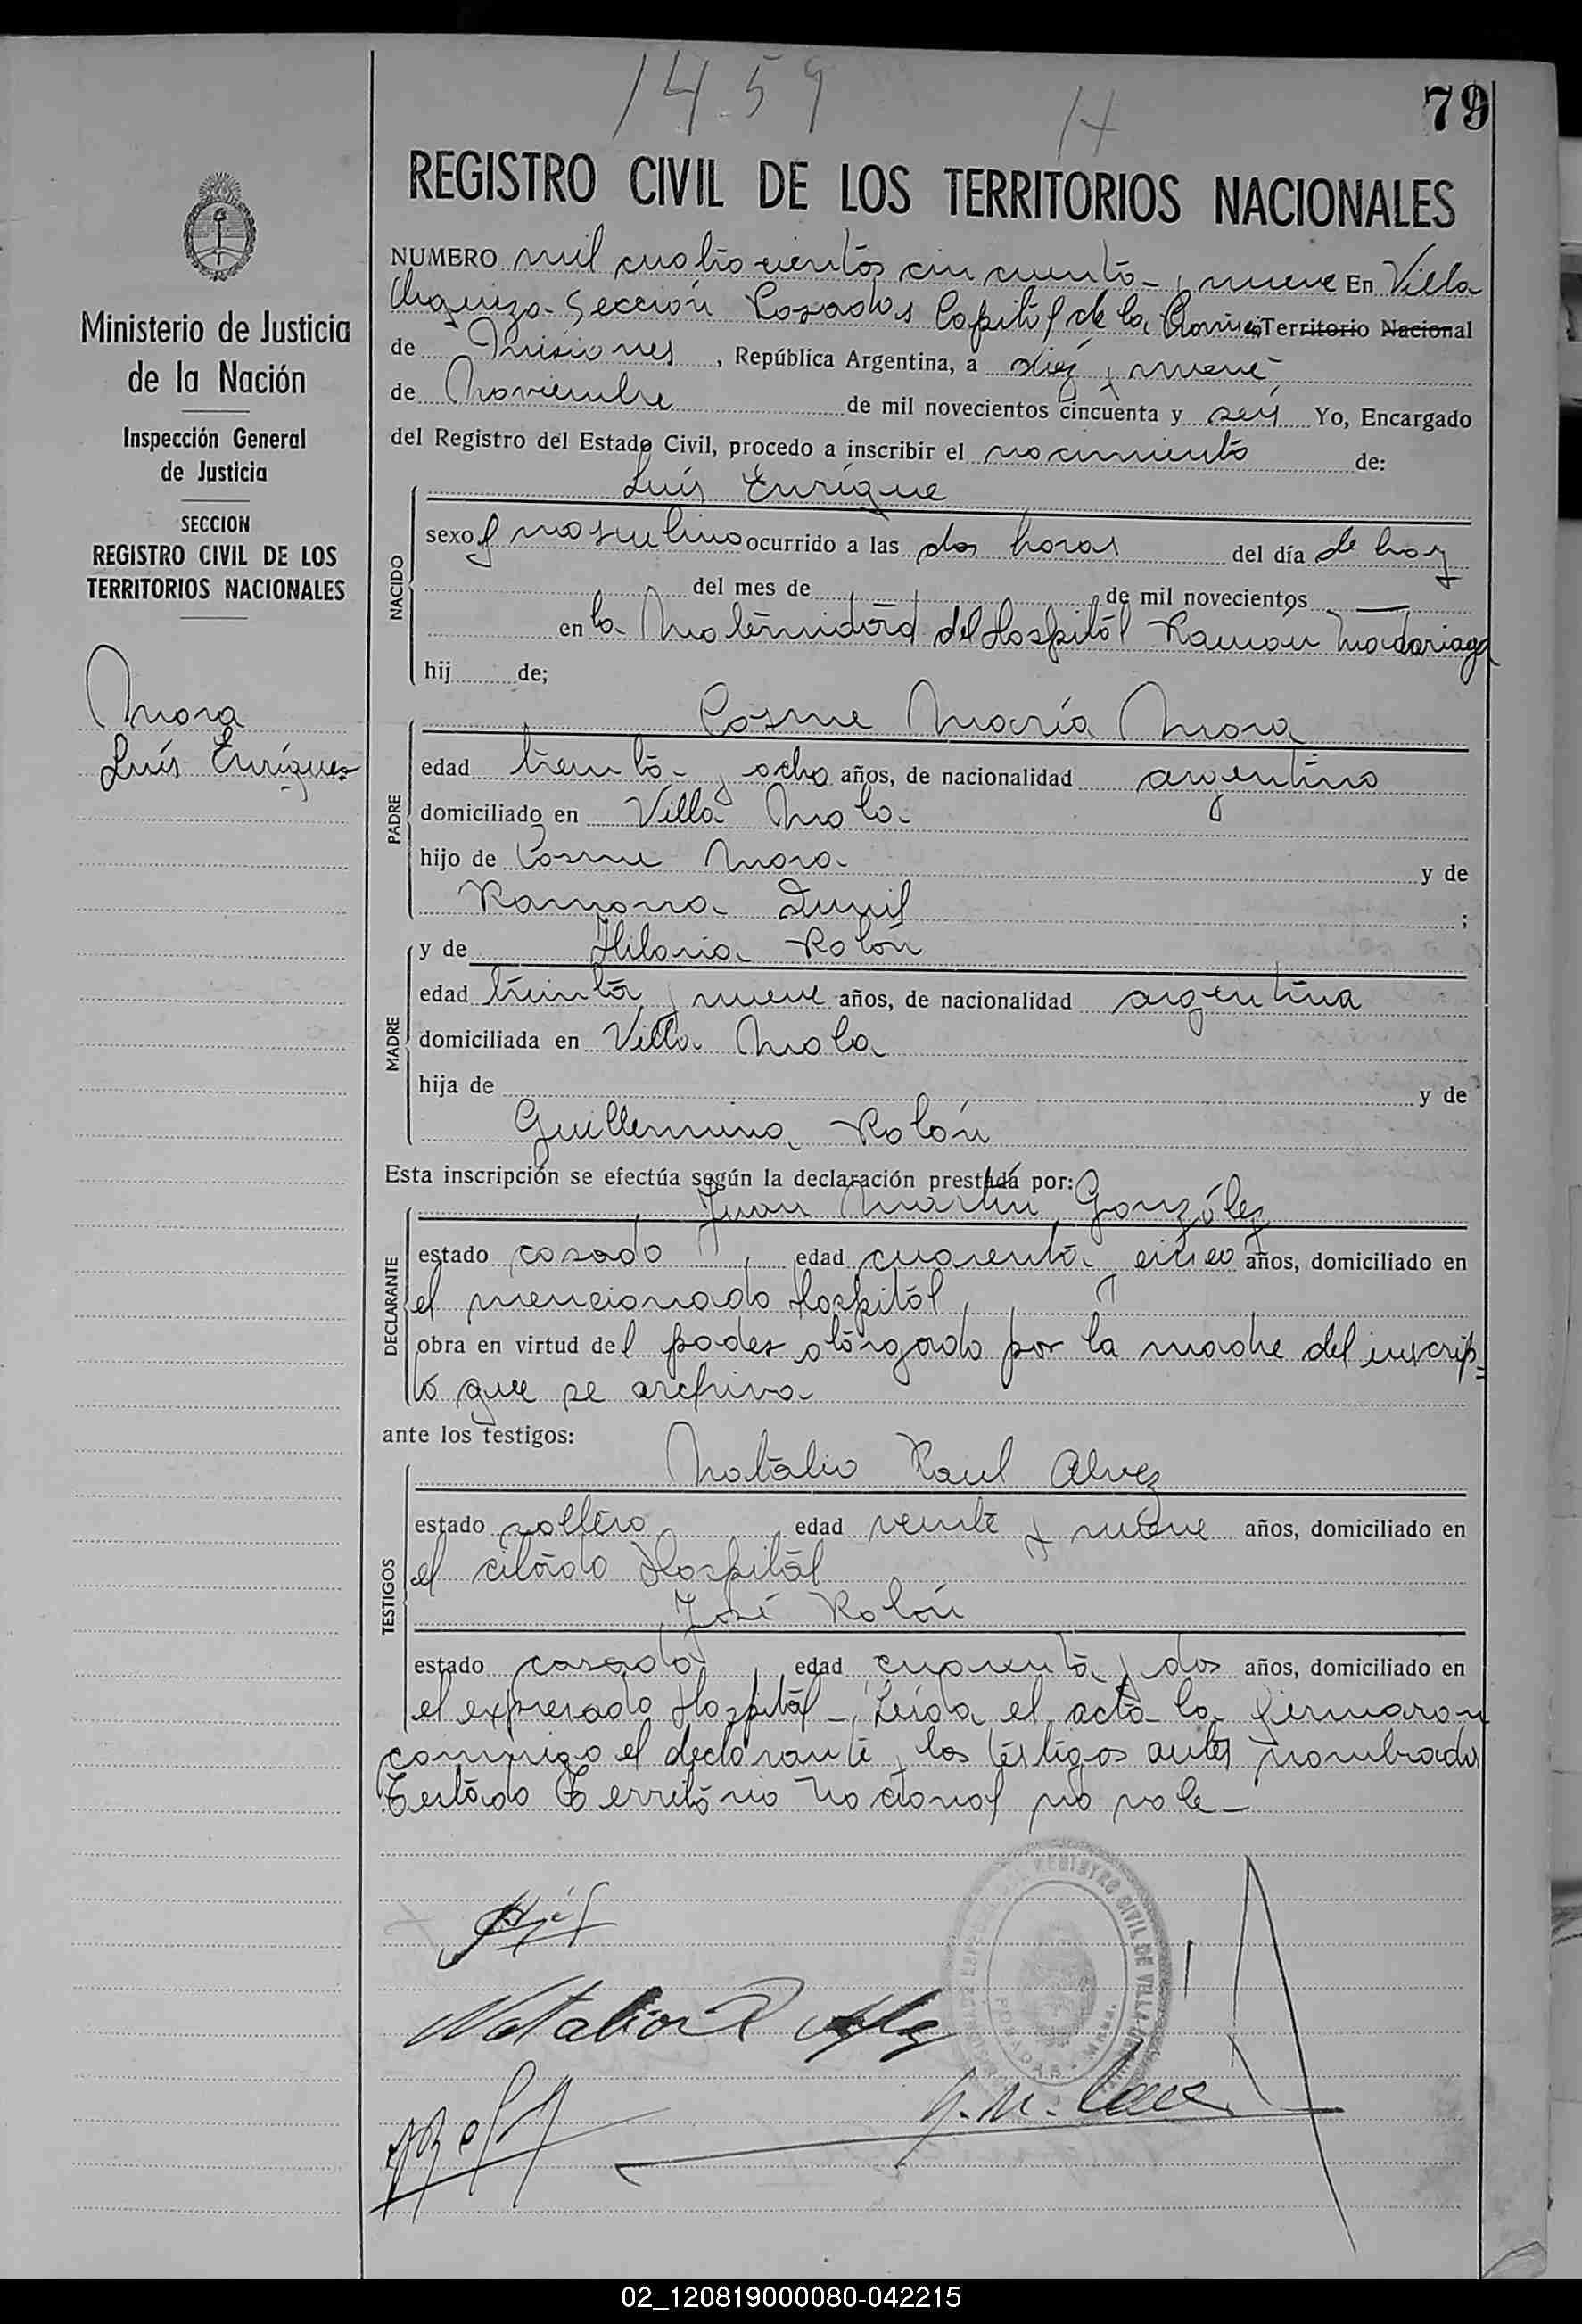 1459
H
79
REGISTRO CIVIL DE LOS TERRITORIOS NACIONALES
Ministerio de Justicia
de la Nación
Inspección General
de Justicia
SECCION
REGISTRO CIVIL DE LOS
TERRITORIOS NACIONALES
Mora
Luís Enrique
NUMERO mil cuatrocientos cincuenta y nueve En Villa
Urquiza Sección Posadas Capital de la Provincia Territorio Nacional
de Misiones, República Argentina, a diez y nueve
de Noviembre de mil novecientos cincuenta y seis Yo, Encargado
del Registro del Estado Civil, procedo a inscribir el nacimiento de:
NACIDO
Luis Enrique
sexo masculino ocurrido a las dos horas del día de hoy
del mes de de mil novecientos —
en la Maternidad del Hospital Ramón Madariaga
hij de;
PADRE
Cosme María Mora
edad treinta y ocho años, de nacionalidad argentino
domiciliado en Villa Mola
hijo de Cosme Mora y de
Ramona ;
MADRE
y de Hilaria Rolón
edad treinta y nueve años, de nacionalidad argentina
domiciliada en Villa Mola
hija de y de
Guillermina Rolón
Esta inscripción se efectúa según la declaración prestada por:
DECLARANTE
Juan Martín González
estado casado edad cuarenta y cinco años, domiciliado en
el mencionado Hospital
obra en virtud del poder otorgado por la madre del inscrip=
to que se archiva
ante los testigos:
TESTIGOS
Natalio Raul Alvez
estado soltero edad veinte y nueve años, domiciliado en
el citado Hospital
José Rolón
estado casado edad cuarenta y dos años, domiciliado en
el expresado Hospital - Leída el acta la firmaron
conmigo el declarante y los testigos antes nombrados
Testado Territorio Nacional no vale -
REGISTRO CIVIL DE VILLA
POSADAS
Natalio R Alvez
02_120819000080-042215